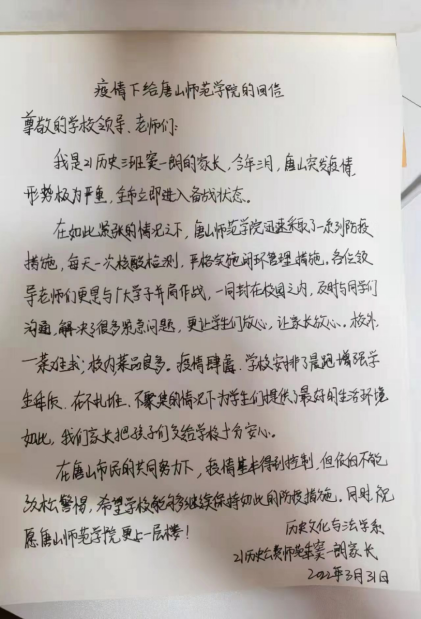 疫情下给唐山师范学院的回信
尊敬的学校领导、老师们:
我是21历史三班窦一朗的家长,今年三月,唐山突发疫情,
形势极为严重,全市立即进入备战状态。
在如此紧张的情况之下,唐山师范学院迅速采取了一系列防疫
措施,每天一次核酸检测,严格实施闭环管理措施。各位领
导老师们更是与广大学子并肩作战,一同封在校园之内,及时与同学们
沟通,解决了很多紧急问题,更让学生们放心,让家长放心。校外
一菜难求;校内菜品良多。疫情肆虐,学校安排了晨跑增强学
生体质,在不扎堆、不聚集的情况下为学生们提供了最好的生活环境
如此,我们家长把孩子们交给学校十分安心。
在唐山市民的共同努力下,疫情基本得到控制,但依旧不能
放松警惕,希望学校能够继续保持如此的防疫措施。同时,祝
愿唐山师范学院更上一层楼!
历史文化与法学系
21历史公费师范窦一朗家长
2022年3月31日